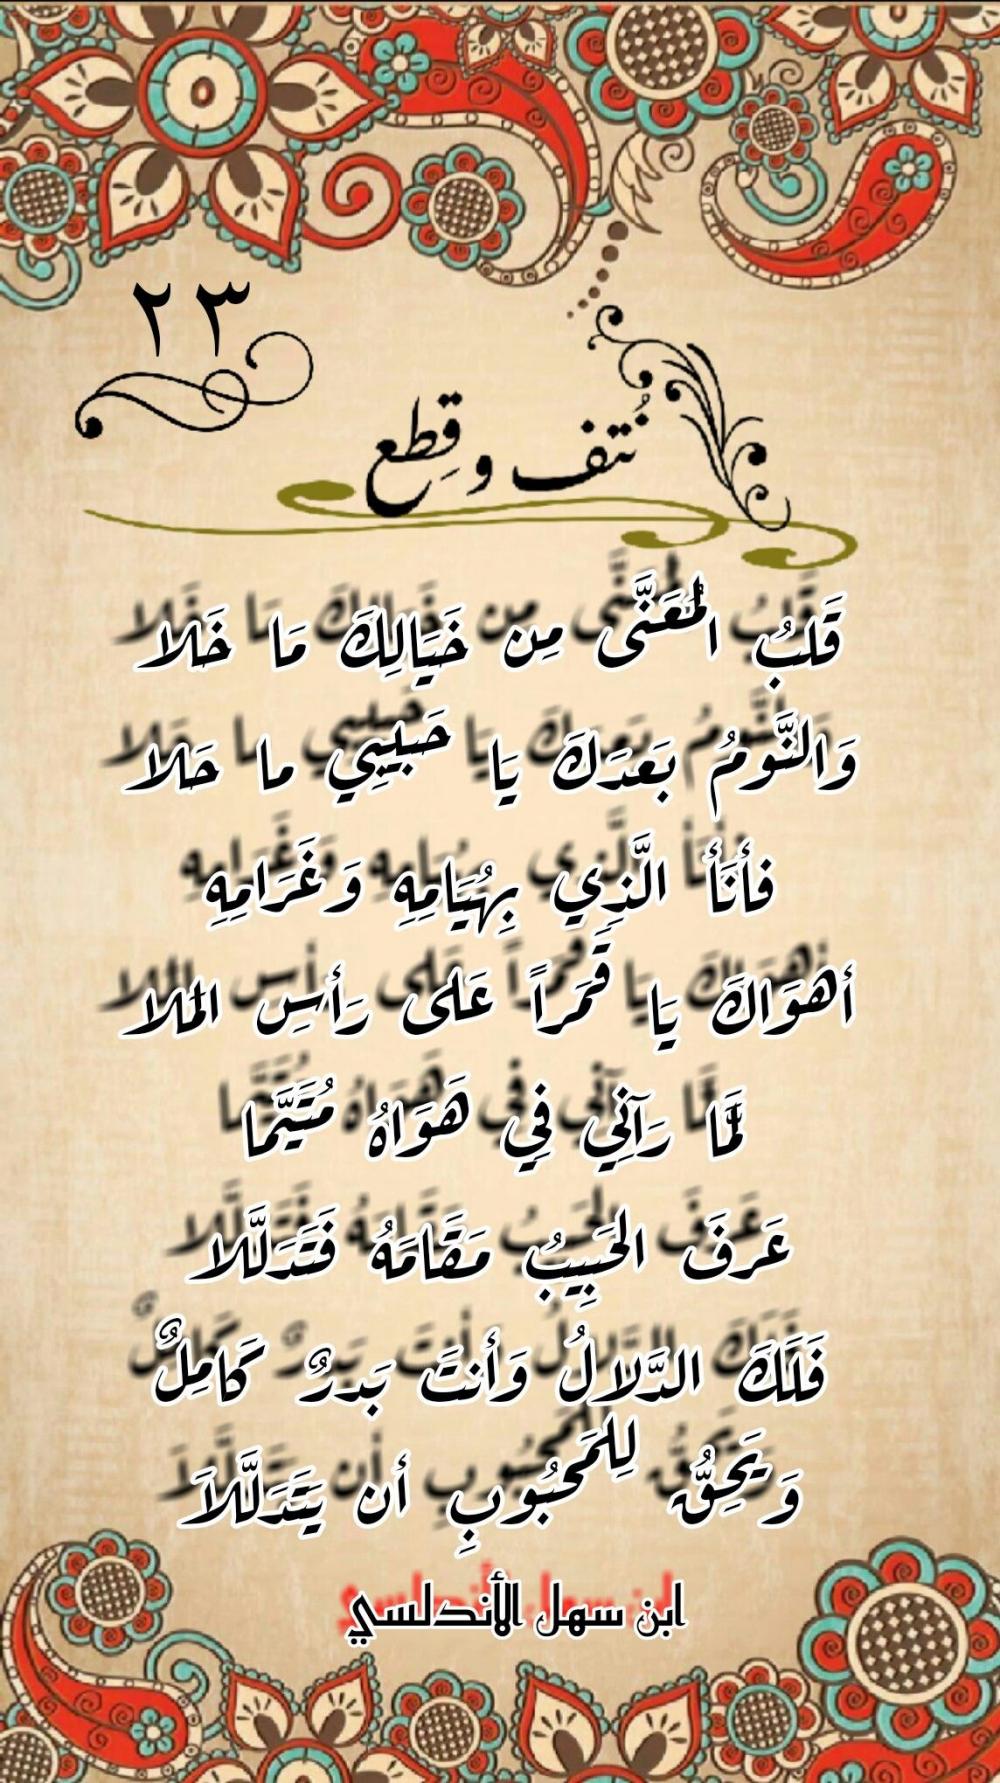 ٢٣
نُتف و قِطع
قَلبُ المُعَنَّى مِن خَيَالِكَ مَا خَلا
وَالنَّومُ بَعدَكَ يَا حَبِيبِي ما حَلا
فأنَا الَّذِي بِهُيَامِهِ وَغَرَامِهِ
أهوَاكَ يَا قَمَراً عَلى رَأسِ الملا
لَمَّا رَآنِي فِي هَوَاهُ مُتَيَّمَا
عَرَفَ الحَبِيبُ مَقَامَهُ فَتَدَلَّلا
فَلَكَ الدَّلالُ وَأنتَ بَدرٌ كَامِلٌ
وَيَحِقُّ لِلمَحبُوبِ أن يَتَدَلَّلاَ
ابن سهل الأندلسي